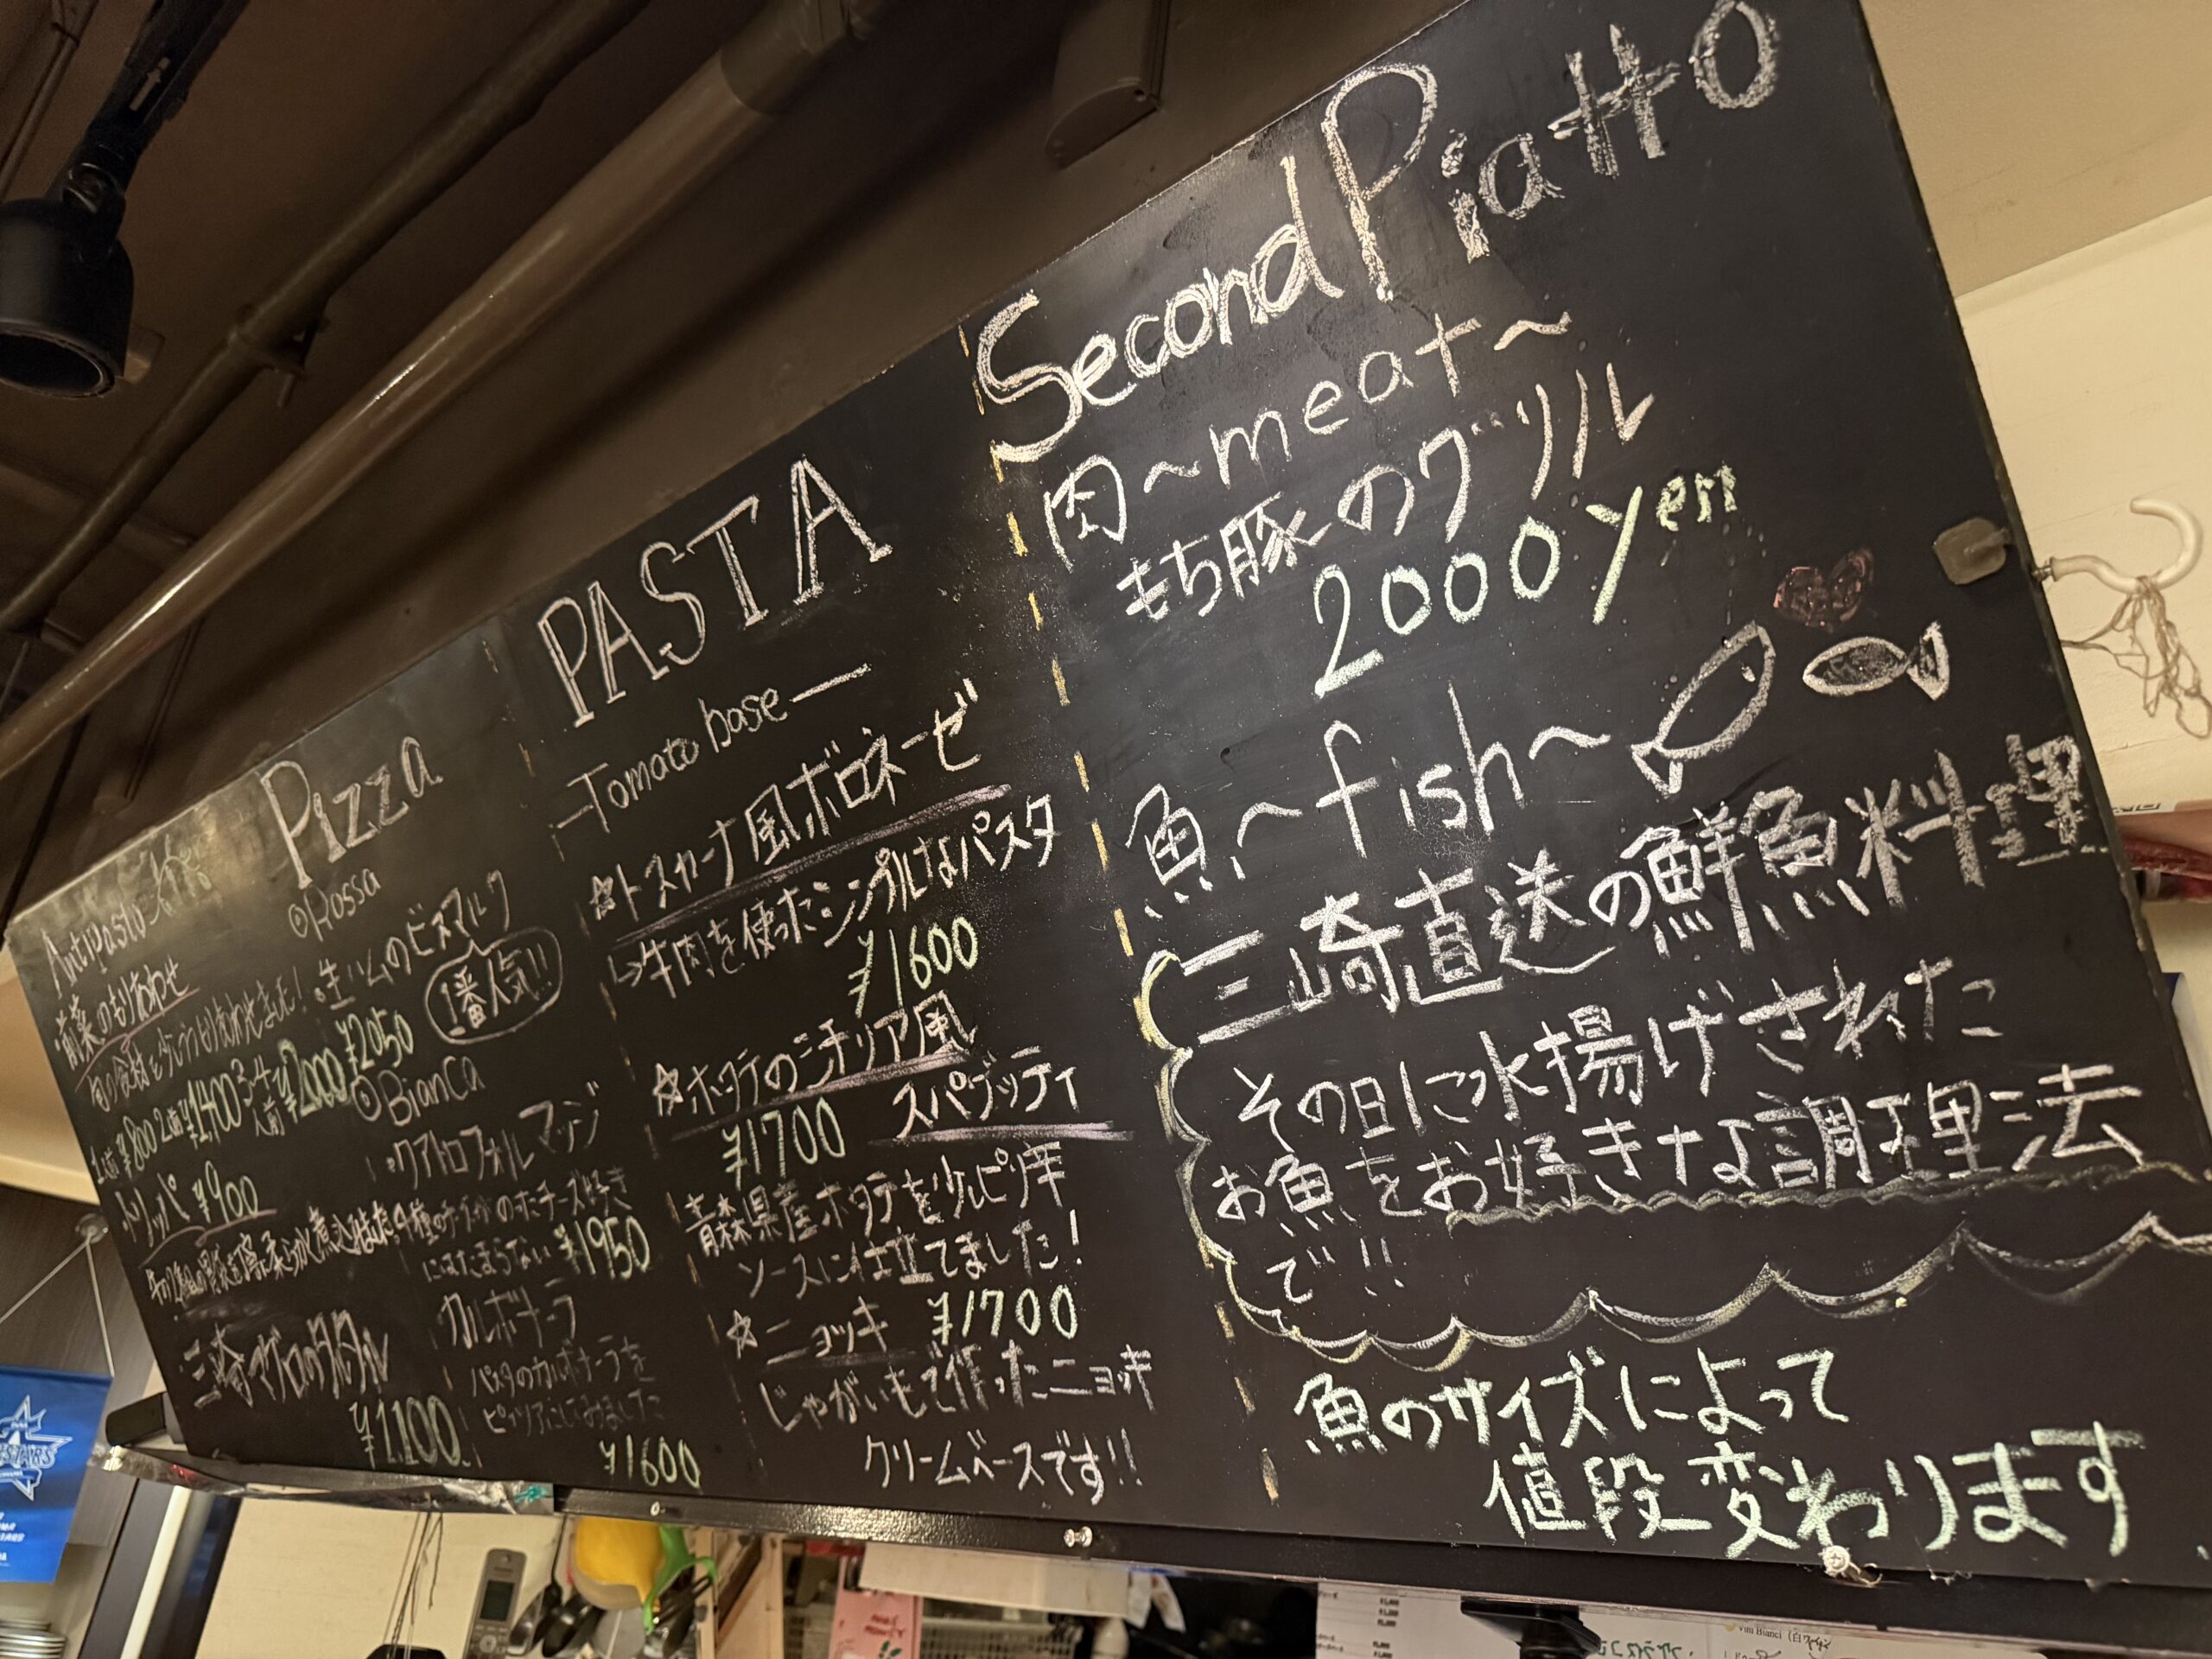 Antipasto
前菜のもりあわせ
旬の食材を少しづつもりあわせました!
1人前 ¥800 2人前 ¥1,400 3-4人前 ¥2000
トリッパ ¥900
三崎マグロのタルタル
¥1,100
Pizza
Rossa
・生ハムのビスマルク
¥2050
1番人気!!
Bianca
・クアトロフォルマッジ
4種のチーズ
にはたまらない ¥1950
カルボナーラ
パスタのカルボナーラを
ピッツアにしてみました
¥1600
PASTA
-Tomato base-
☆トスカーナ風ボロネーゼ
↳牛肉を使ったシンプルなパスタ
¥1600
☆ホタテのシチリア風
スパゲッティ
¥1700
青森県産ホタテを少しピリ辛
ソースに仕立てました!
☆ニョッキ ¥1700
じゃがいもで作ったニョッキ
クリームベースです!!
Second Piatto
肉~meat~
もち豚のグリル
2000yen
魚~fish~
三崎直送の鮮魚料理
その日に水揚げされた
お魚をお好きな調理法
で!!
魚のサイズによって
値段変わります